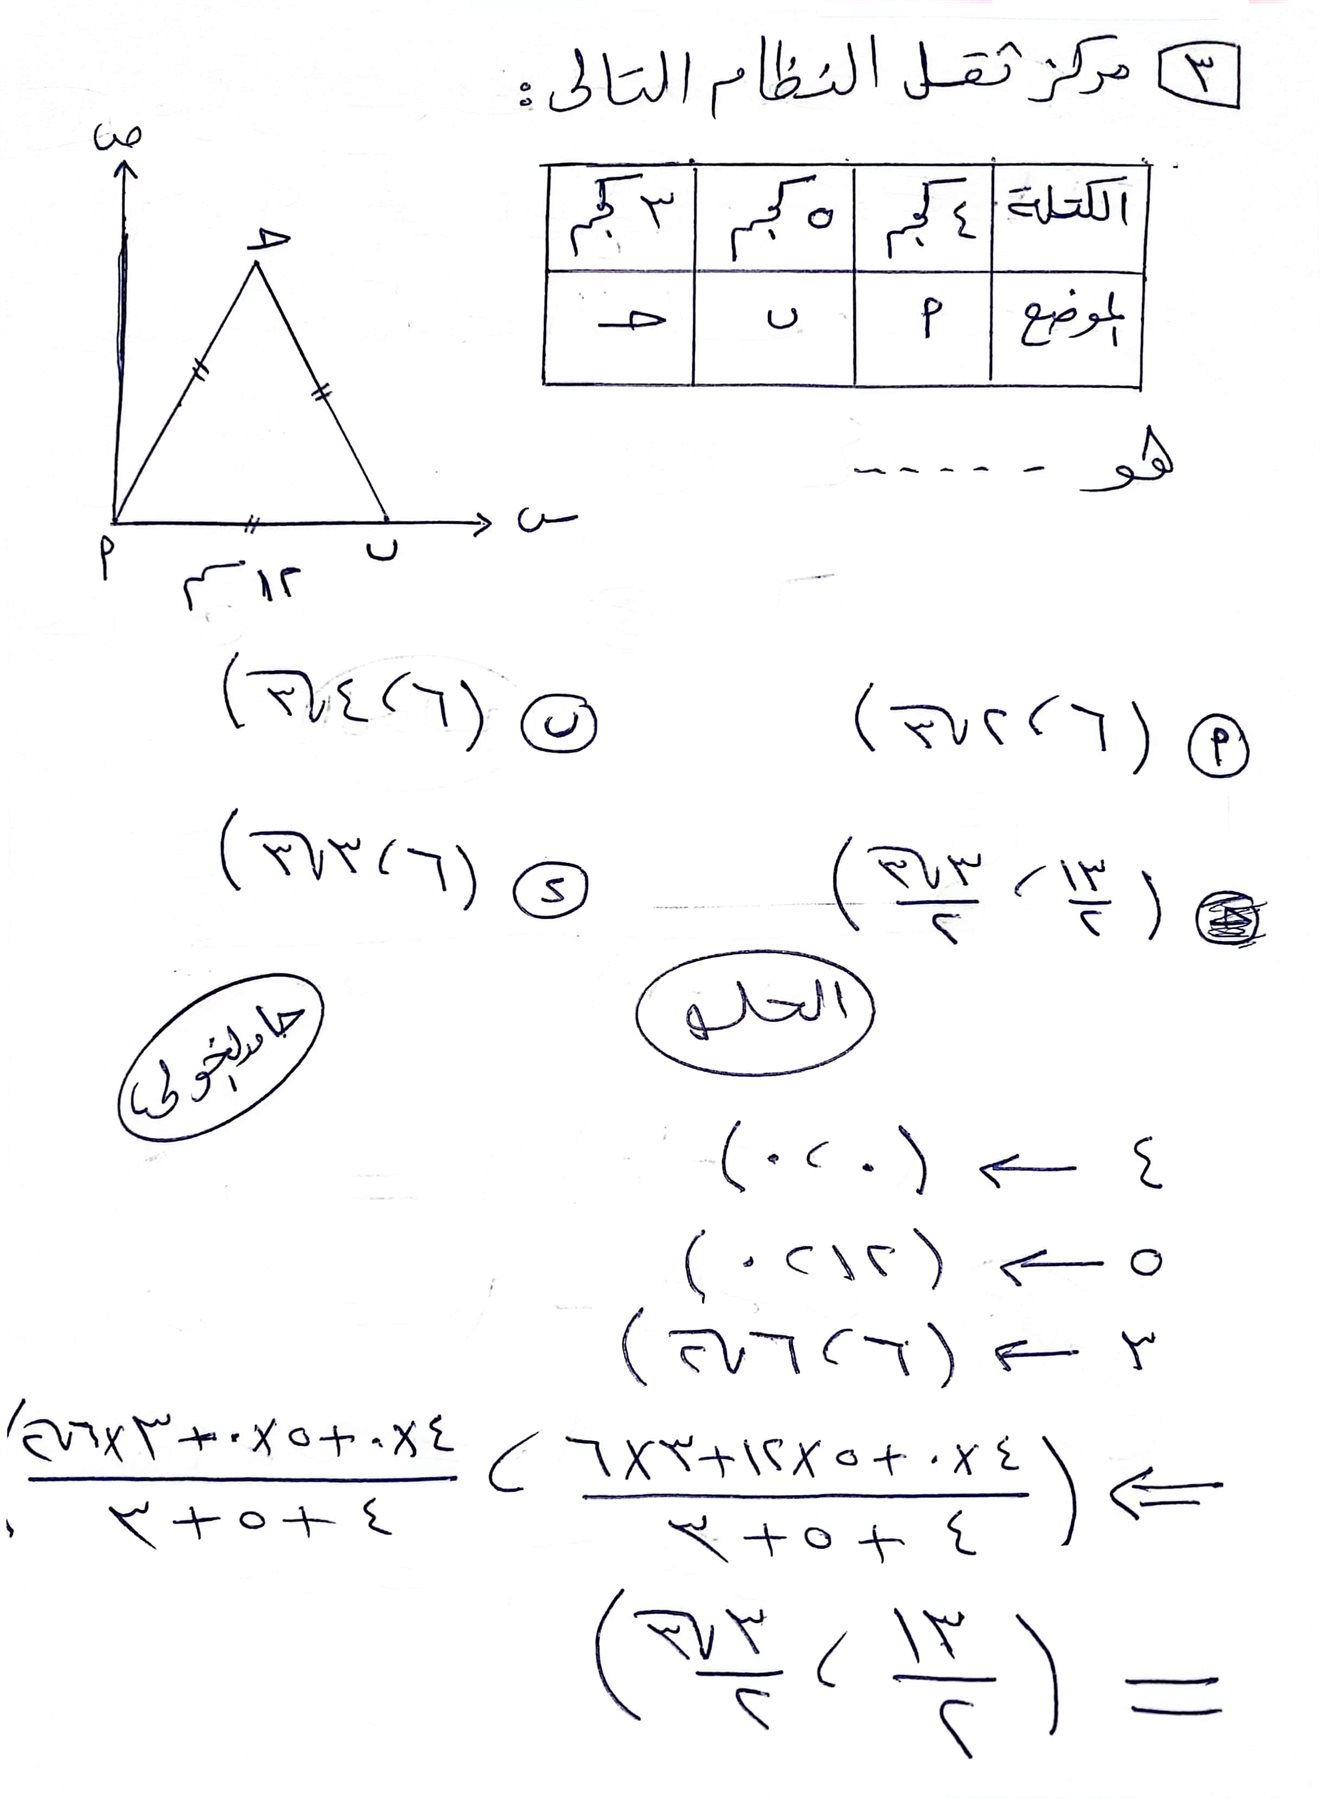 ٣ مركز ثقل النظام التالى :
الكتلة ٤ كجم ٥ كجم ٣ كجم
الموضع ٩ ب حـ
هو - - - - -
ص
حـ
س
٩ ب
١٢ سم
٩ (٦ ، ٢√٣) ب (٦ ، ٤√٣)
حـ (١٣/٢ ، ٣√٣/٢) د (٦ ، ٣√٣)
الحلـ
حامد الخولى
٤ ← (٠ ، ٠)
٥ ← (١٢ ، ٠)
٣ ← (٦ ، ٦√٣)
⇐ (٤×٠+٥×١٢+٣×٦/٤+٥+٣ ، ٤×٠+٥×٠+٣×٦√٣/٤+٥+٣)
= (١٣/٢ ، ٣√٣/٢)